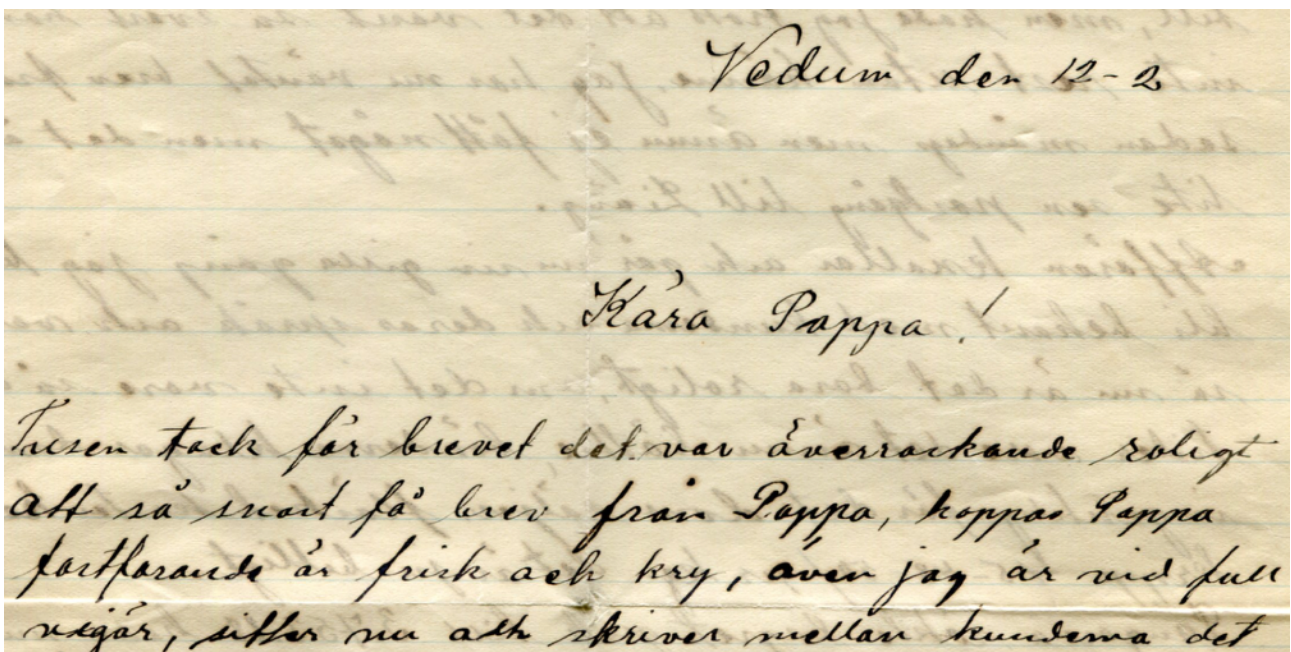 Vedum den 12-2
Kära Pappa!
Tusen tack för brevet det var överraskande roligt
att så snart få brev från Pappa, hoppas Pappa
fortfarande är frisk och kry, även jag är vid full
vigör, sitter nu och skriver mellan kunderna det